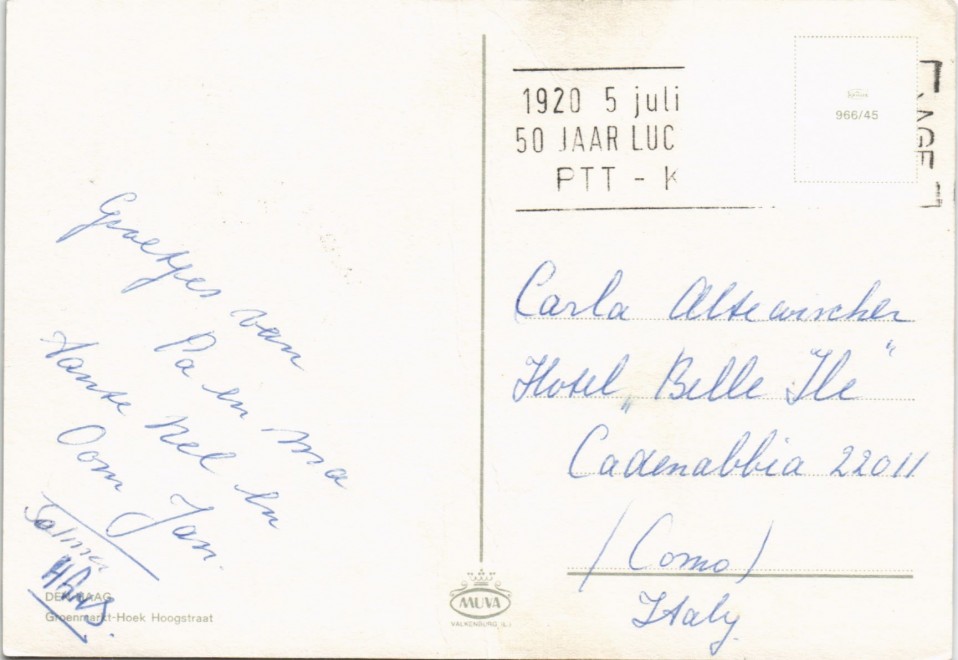 Groetjes van
Pa en ma
Tante Nel en
Oom Jan.
Hans.
DEN HAAG
Groenmarkt-Hoek Hoogstraat
MUVA
VALKENBURG (L.)
1920 5 juli
50 JAAR LUC
PTT - K
966/45
Carla Altewischer
Hotel „Belle Ile"
Cadenabbia 22011
(Como)
Italy